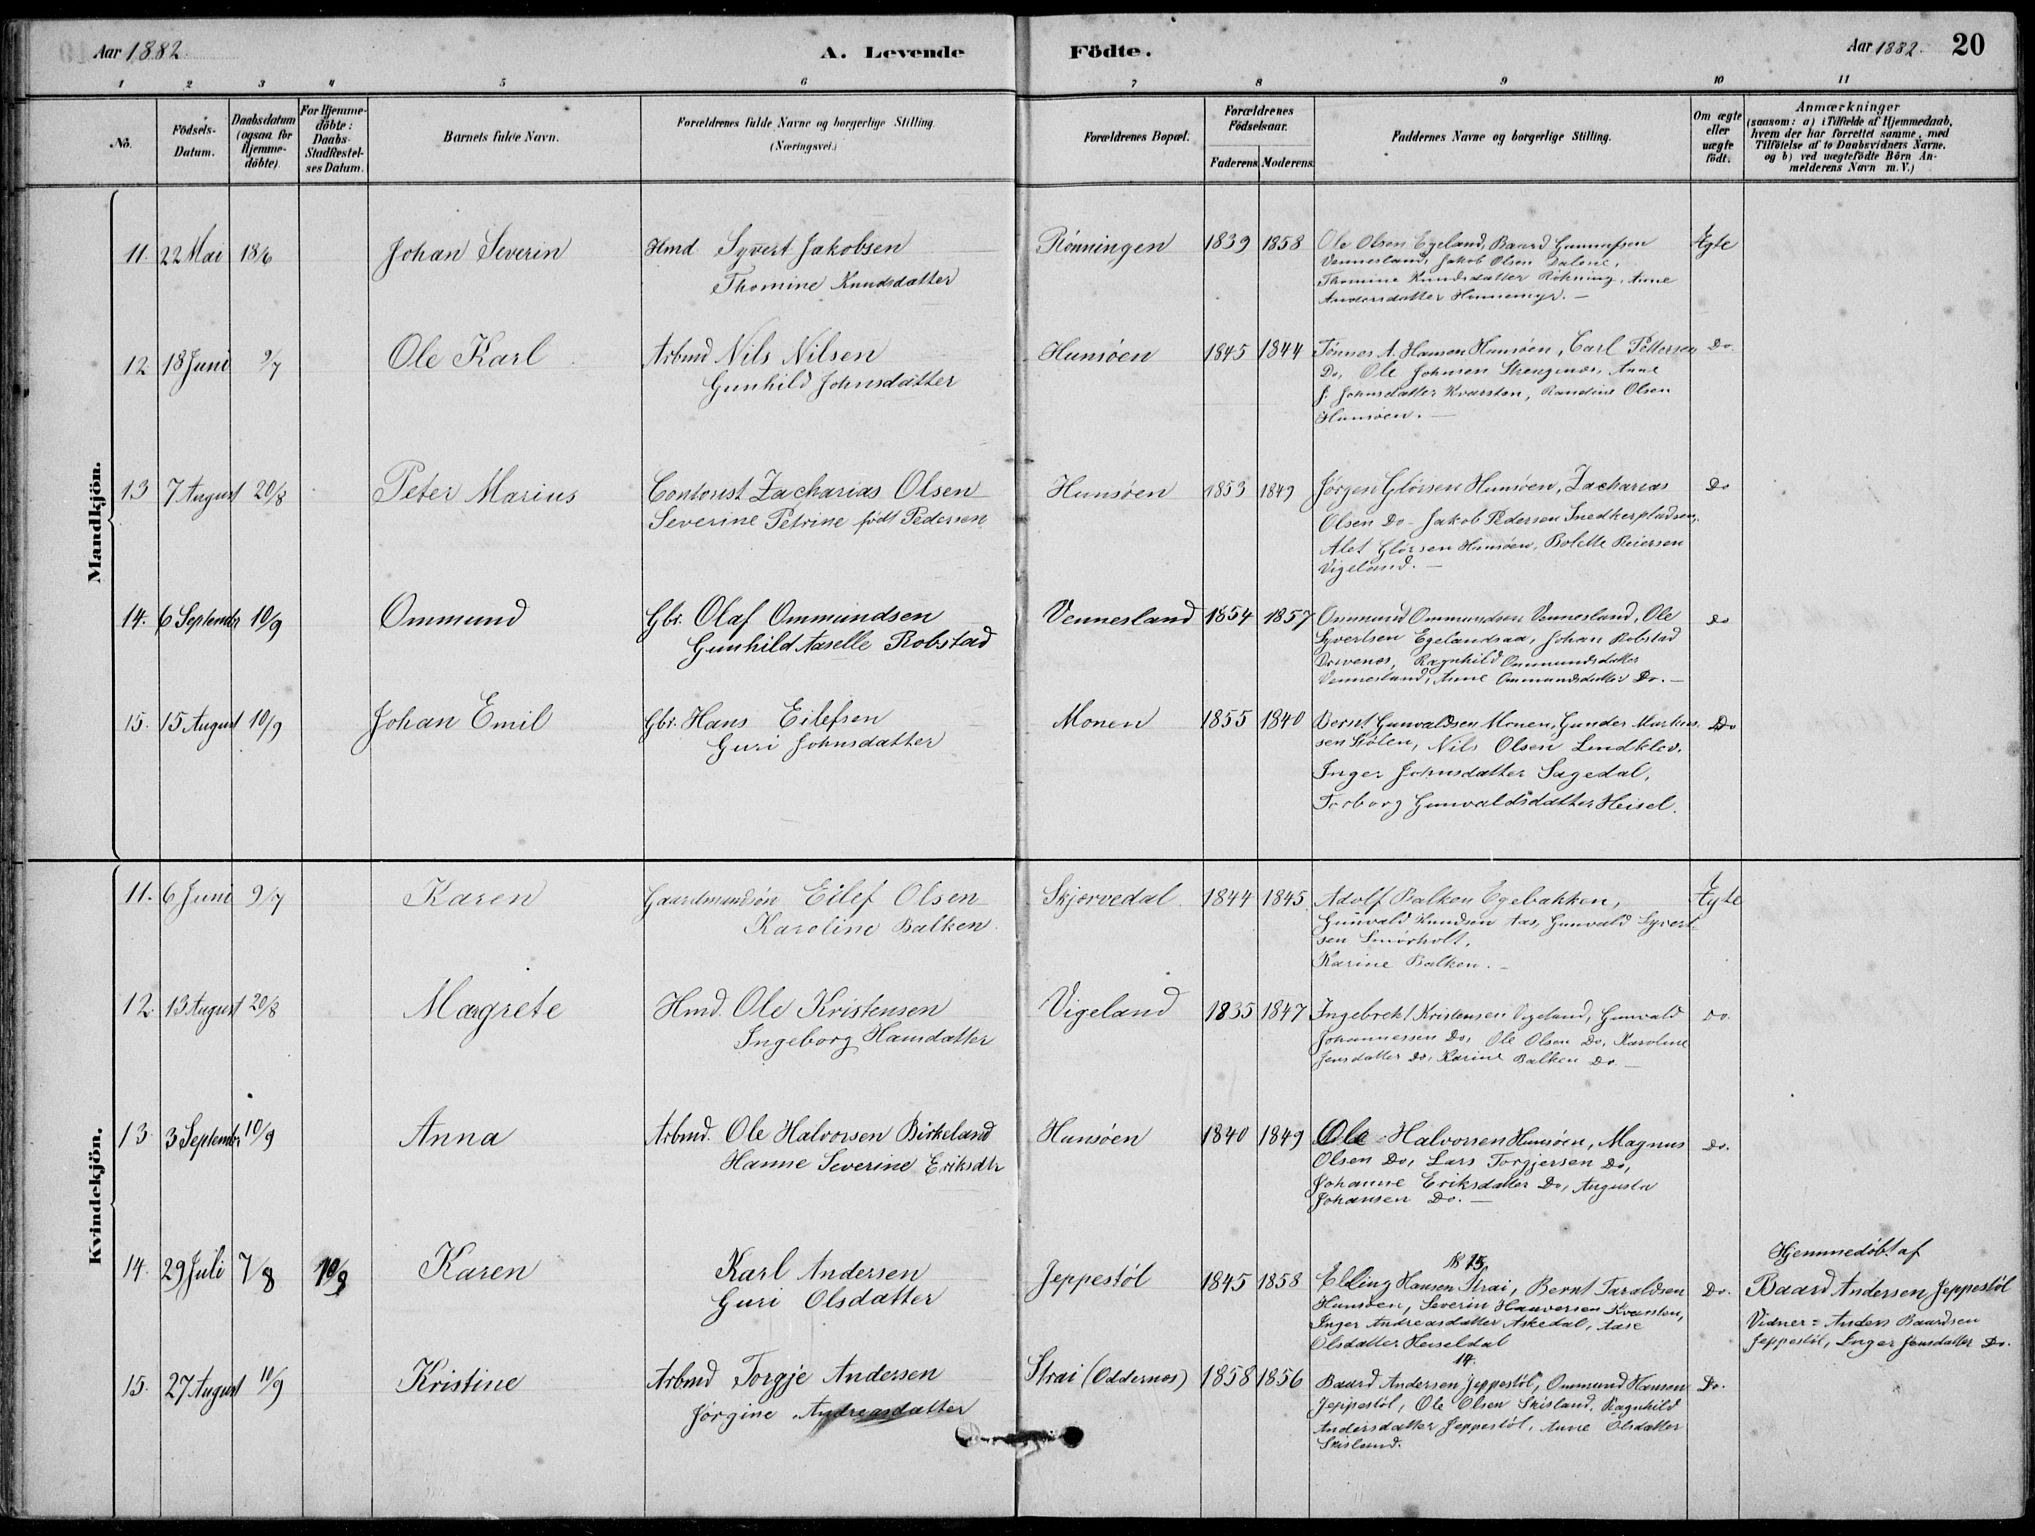 Aar 1882. A. Levende Födte. Aar 1882. 20
1 2 3 4 5 6 7 8 9 10 11
No. Födsels-Datum. Daabsdatum (ogsaa for Hjemme-döbte) For Hjemme-döbte: Daabs-Stadfæstel-ses Datum. Barnets fulde Navn. Forældrenes fulde Navne og borgerlige Stilling. (Næringsvei.) Forældrenes Bopæl. Forældrenes Födselsaar. Faderens Moderens Faddernes Navne og borgerlige Stilling. Om ægte eller uægte födt. Anmærkninger (saasom: a) i Tilfælde af Hjemmedaab, hvem der har forrettet samme, med Tilföielse af to Daabsvidners Navne. og b) ved uægtefödte Börn An-melderens Navn m. V.)
Mandkjön.
11. 22 Mai 18/6 Johan Severin Hmd Syvert Jakobsen Rönningen 1839 1858 Ole Olsen Egeland, Baard Gunnufsen Ægte
Vennesland, Jakob Olsen Dalene,
Thomine Knudsdatter Thomine Knudsdatter Rökning, Anne
Andersdatter Hunnemyr. —
12 18 Juni 9/7 Ole Karl Arbmd Nils Nilsen Hunsöen 1845 1844 Tönnes A. Hansen Hunsöen, Carl Pettersen Do.
Gunhild Johnsdatter Do, Ole Johnsen Strengenes, Anne
J. Johnsdatter Kvarsten, Randine Olsen
Hunsöen. —
13 7 August 20/8 Peter Marius Contorist Zacharias Olsen Hunsöen 1853 1849 Jörgen Glörsen Hunsöen, Zacharias Do
Severine Petrine födt Pedersen Olsen Do - Jakob Pedersen Snedkerpladsen,
Alet Glörsen Hunsöen, Bolette Reiersen
Vigeland. —
14. 6 September 10/9 Ommund Gbr. Olaf Ommundsen Vennesland 1854 1857 Ommund Ommundsen Vennesland, Ole Do
Gunhild Aaselle Robstad Syvertsen Egelandsaa, Johan Robstad
Drivenes, Ragnhild Ommundsdatter
Vennesland, Anne Ommundsdatter Do. —
15. 15 August 10/9 Johan Emil Gbr. Hans Eilefsen Monen 1855 1840 Bernt Gunvaldsen Monen, Gunder Markus Do
Guri Johnsdatter sen Stölen, Nils Olsen Lindklev.
Inger Johnsdatter Sagedal,
Torborg Gunvaldsdatter Heisel.
Kvindekjön.
11. 6 Juni 9/7 Karen Gaardmandsön Eilef Olsen Skjærvedal 1844 1845 Adolf Balken Egebakken, Ægte
Karoline Balken. Gunvald Knudsen Aas, Gunvald Syvert
sen Smörholt,
Karine Balken. —
12. 13 August 20/8 Margrete Hmd. Ole Kristensen Vigeland 1835 1847 Ingebrekt Kristensen Vigeland, Gunvald Do.
Ingeborg Hansdatter Johannessen Do, Ole Olsen Do, Karoline
Jensdatter Do, Karine Balken Do. —
13 3 September 10/9 Anna Arbmd. Ole Halvorsen Birkeland Hunsöen 1840 1849 Ole Halvorsen Hunsöen, Magnus Do.
Hanne Severine Eriksdtr Olsen Do, Lars Torgjersen Do,
Johanne Eriksdatter Do, Augusta
Johansen Do. —
14. 29 Juli 7/8 10/9 Karen Karl Andersen Jeppestöl 1845 1858 15. Elling Hansen Strai, Bernt Taraldsen Do. Hjemmedöbt af
Guri Olsdatter Hunsöen, Severin Hauversen Kvarsten, Baard Andersen Jeppestöl
Inger Andreasdatter Askedal, Aase Vidner = Anders Baardsen
Olsdatter Heiseldal Jeppestöl, Inger Jensdatter Do.
15. 27 August 10/9 Kristine Arbmd Torgje Andersen Strai (Oddernes) 1858 1856 14. Baard Andersen Jeppestöl, Ommund Hansen Do.
Jörgine Andreasdatter Jeppestöl, Ole Olsen Skisland, Ragnhild
Andersdatter Jeppestöl, Anne Olsdatter
Skisland.